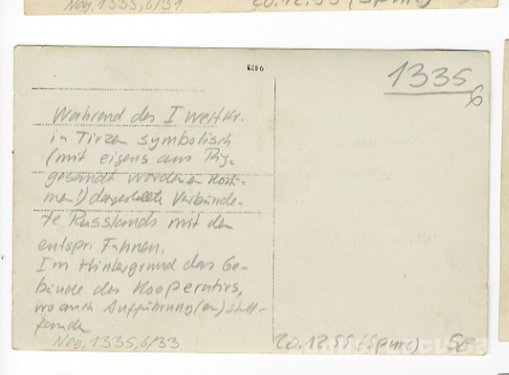 Neg. 1335,6/31.
20.12.55 (Spure)
9423
1335
6
Während des I Weltkr.
in Tirzen symbolisch
(mit eigens aus Riga
gesandt wordenen Kostü-
men!) dargestellte Verbünde-
te Russlands mit den
entspr. Fahnen.
Im Hintergrund das Ge-
bäude des Kooperativs,
wo auch Aufführung(en) statt-
fanden
Neg. 1335,6/33.
20.12.55 (Spure)